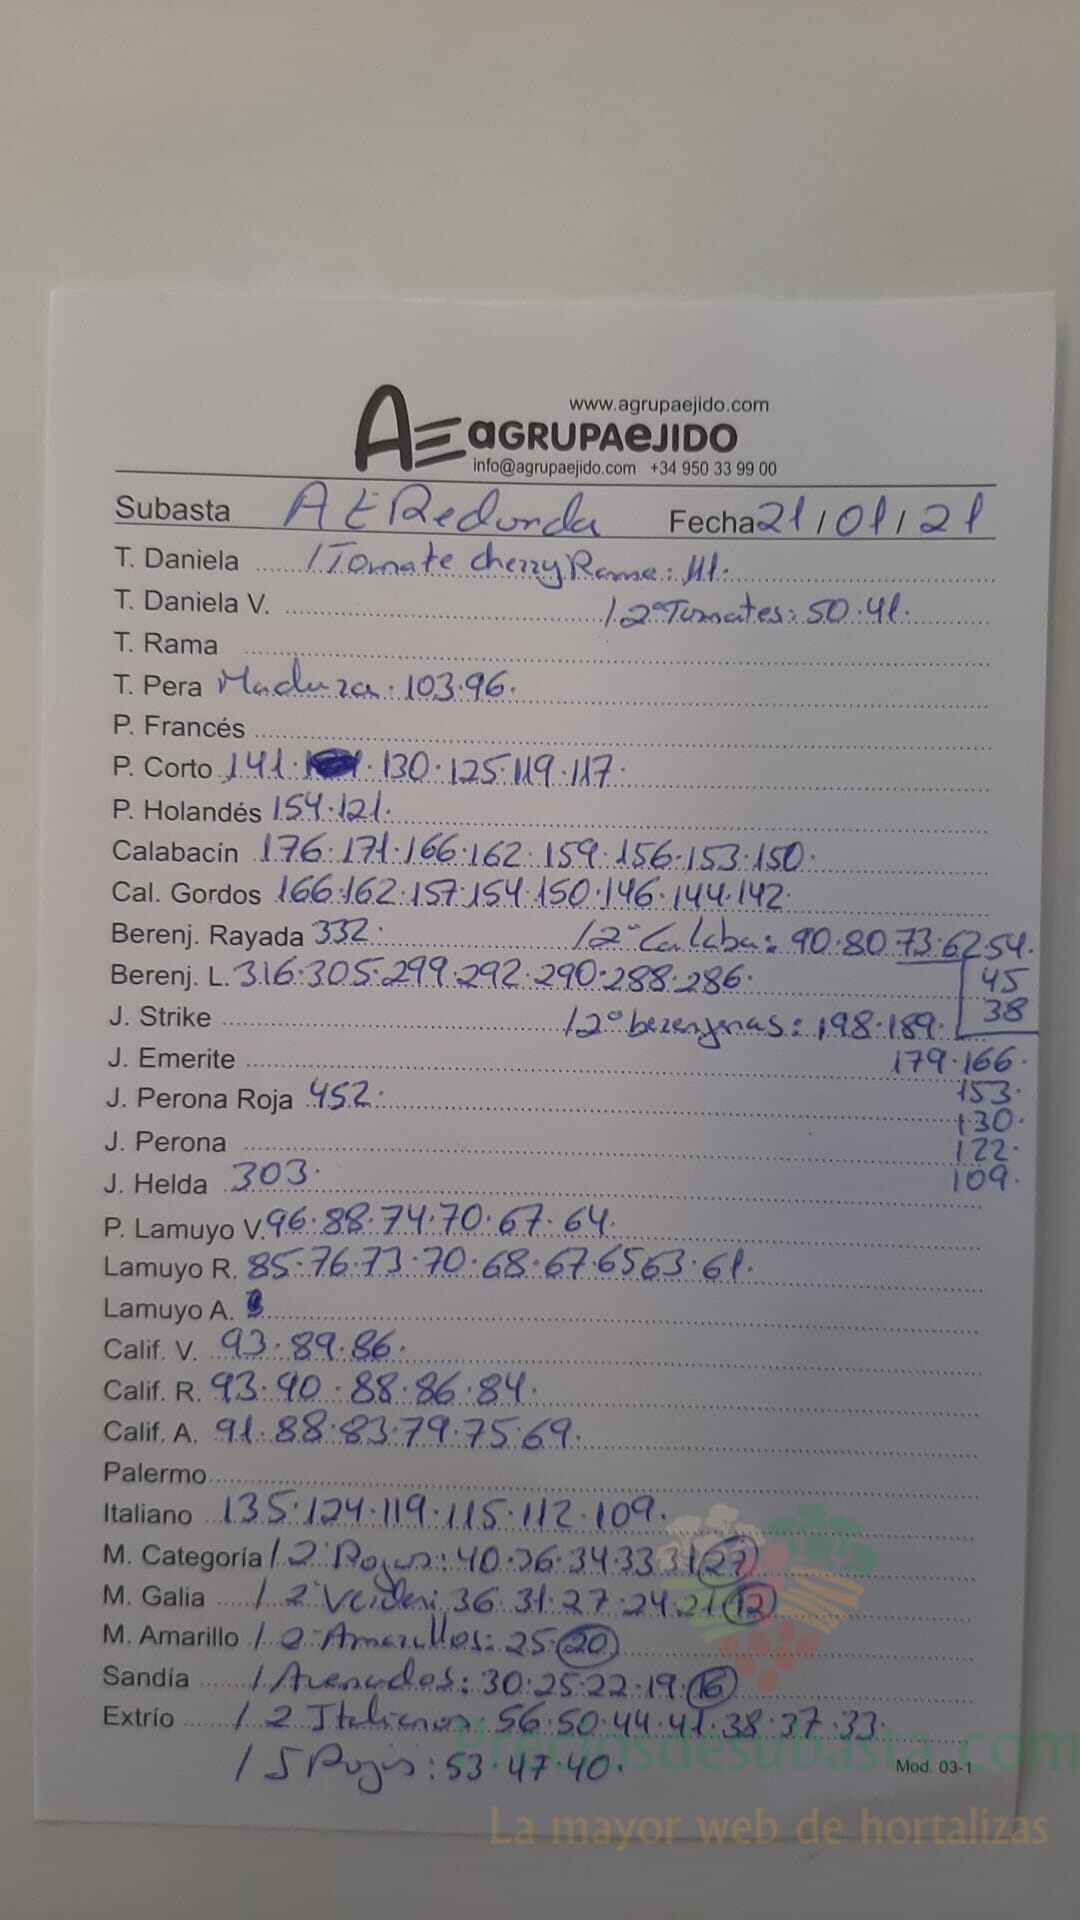 www.agrupaejido.com
AE AGRUPAEJIDO
info@agrupaejido.com +34 950 33 99 00
Subasta AE Redonda Fecha 21/01/21
T. Daniela / Tomate cherry Rama: 111.
T. Daniela V. / 2ª Tomates: 50.41.
T. Rama
T. Pera Madura: 103.96.
P. Francés
P. Corto 141. 130.125.119.117.
P. Holandés 154.121.
Calabacín 176.171.166.162.159.156.153.150.
Cal. Gordos 166.162.157.154.150.146.144.142.
Berenj. Rayada 332. / 2ª Calaba: 90.80.73.62.54.
Berenj. L. 316.305.299.292.290.288.286. 45
38
J. Strike / 2ª berenjenas: 198.189.
J. Emerite 179.166.
J. Perona Roja 452. 153.
130.
J. Perona 122.
J. Helda 303. 109.
P. Lamuyo V. 96.88.74.70.67.64.
Lamuyo R. 85.76.73.70.68.67.65.63.61.
Lamuyo A.
Calif. V. 93.89.86.
Calif. R. 93.90.88.86.84.
Calif. A. 91.88.83.79.75.69.
Palermo
Italiano 135.124.119.115.112.109.
M. Categoría / 2ª Rojos: 40.36.34.33.31.27
M. Galia / 2ª Verdes: 36.31.27.24.21.12
M. Amarillo / 2ª Amarillos: 25.20
Sandía / Arenados: 30.25.22.19.16
Extrío / 2 Italianos: 56.50.44.41.38.37.33.
/ 5 Rojos: 53.47.40.
Mod. 03-1
Preciosdesubasta.com
La mayor web de hortalizas